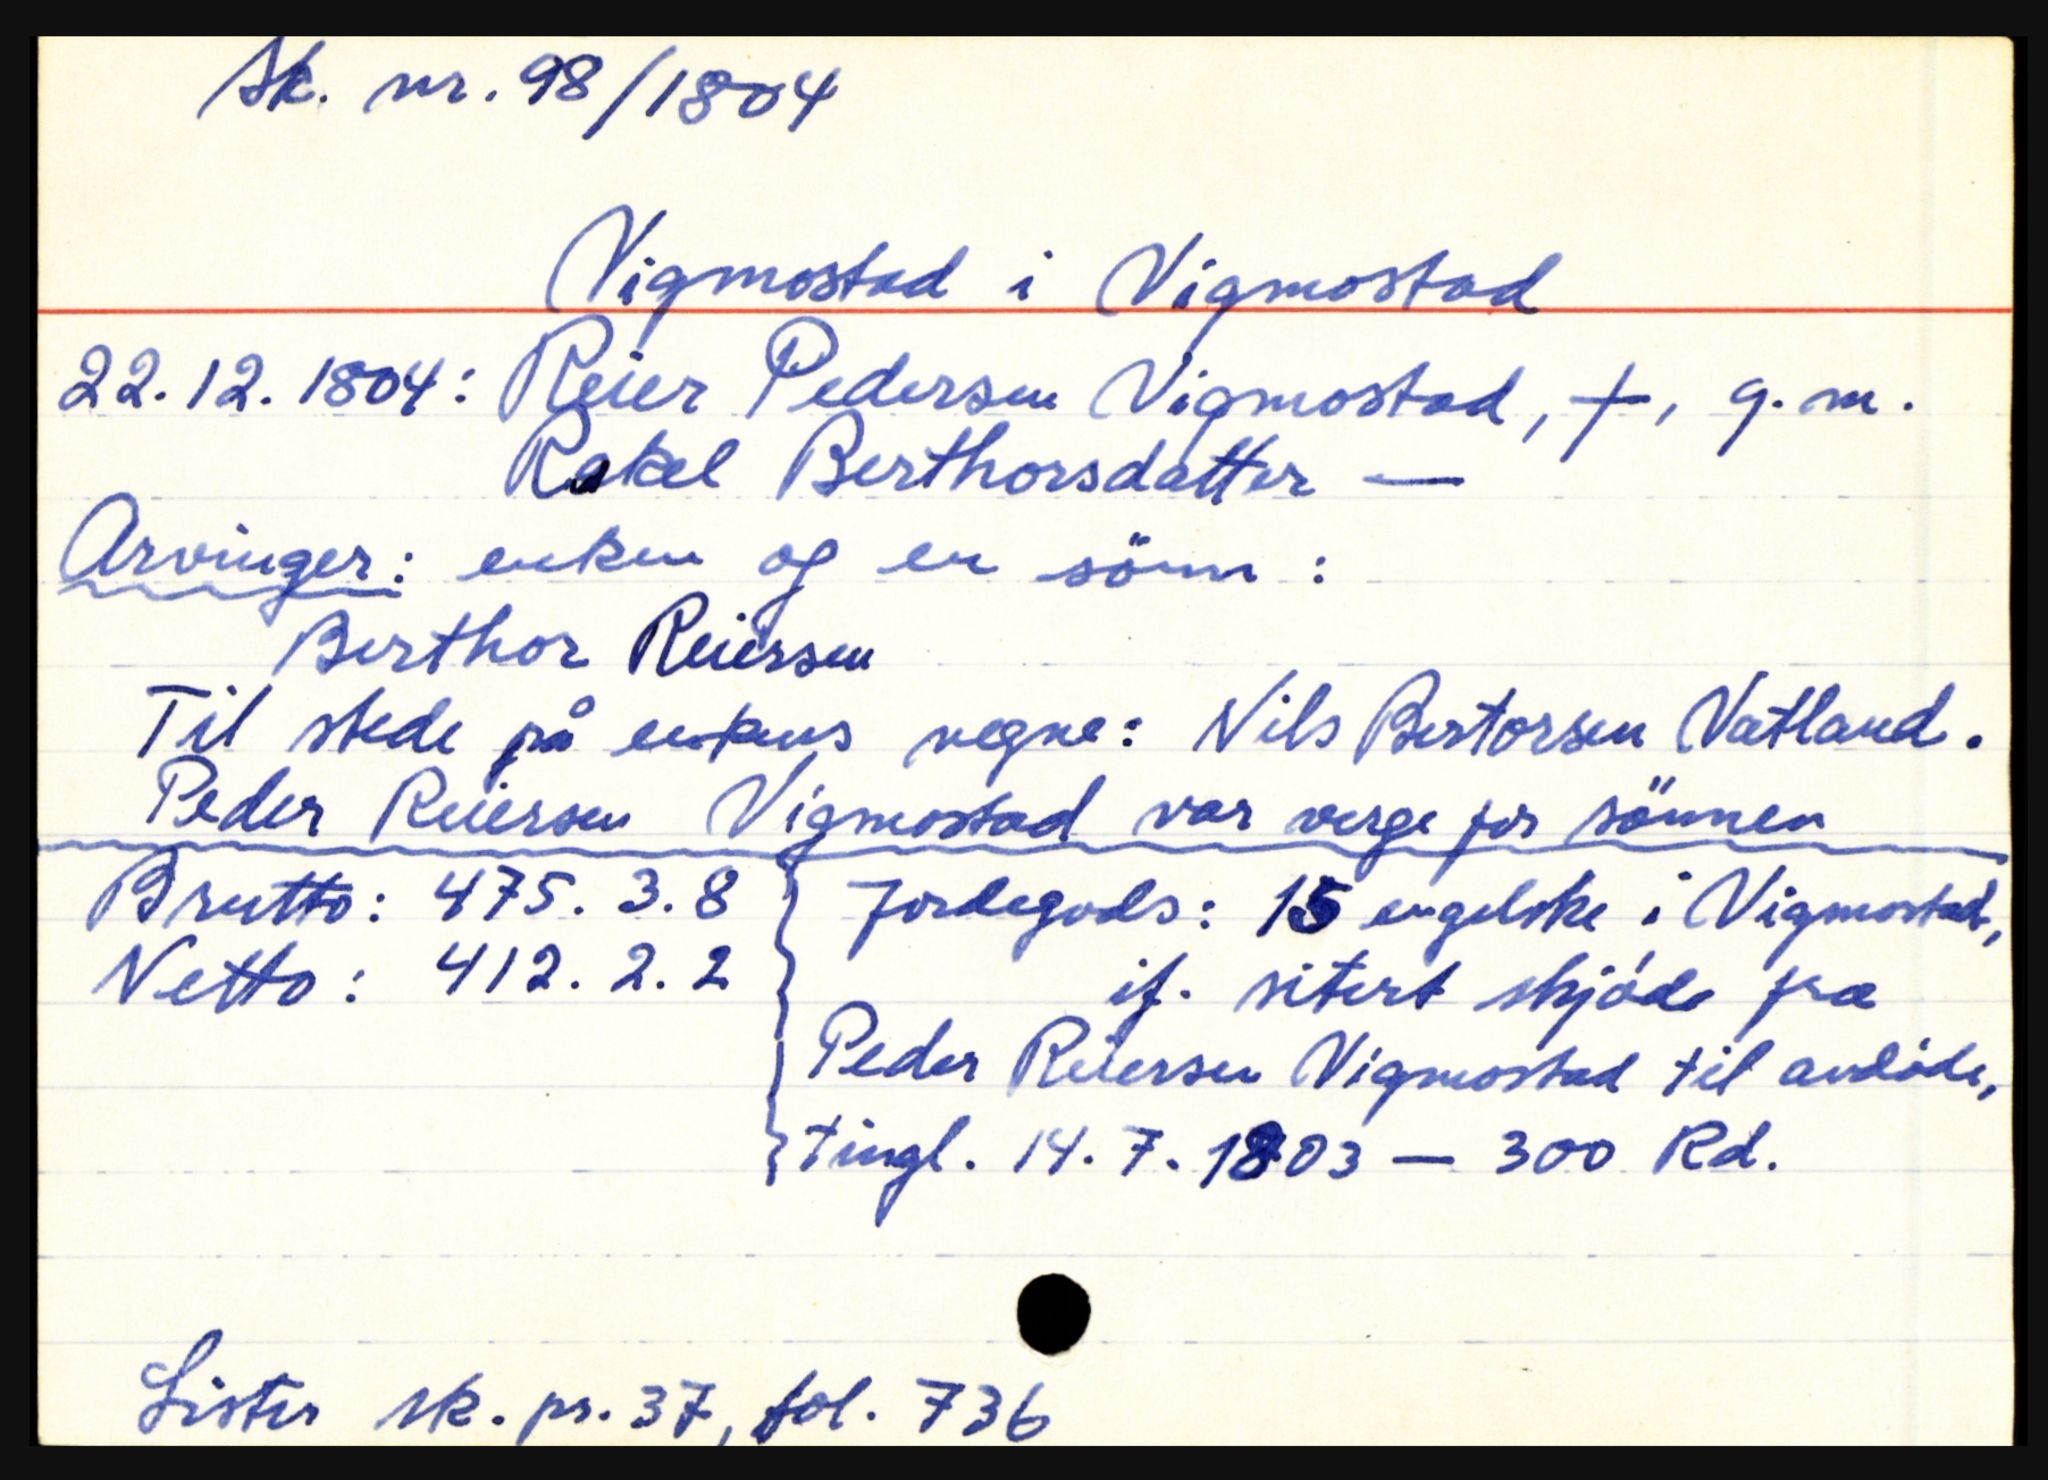 Sk. nr. 98/1804
Vigmostad i Vigmostad
22.12.1804: Reier Pedersen Vigmostad, +, g. m.
Rakel Berthorsdatter —
Arvinger: enken og en sönn:
Berthor Reiersen
Til stede på enkens vegne: Nils Bertorsen Vatland.
Peder Reiersen Vigmostad var verge for sönnen
Brutto: 475. 3. 8
Netto: 412. 2. 2
Jordegods: 15 engelske i Vigmostad,
if. sitert skjóde fra
Peder Reiersen Vigmostad til avdóde,
tingl. 14. 7. 1803 — 300 Rd.
Lister sk. pr. 37, fol. 736